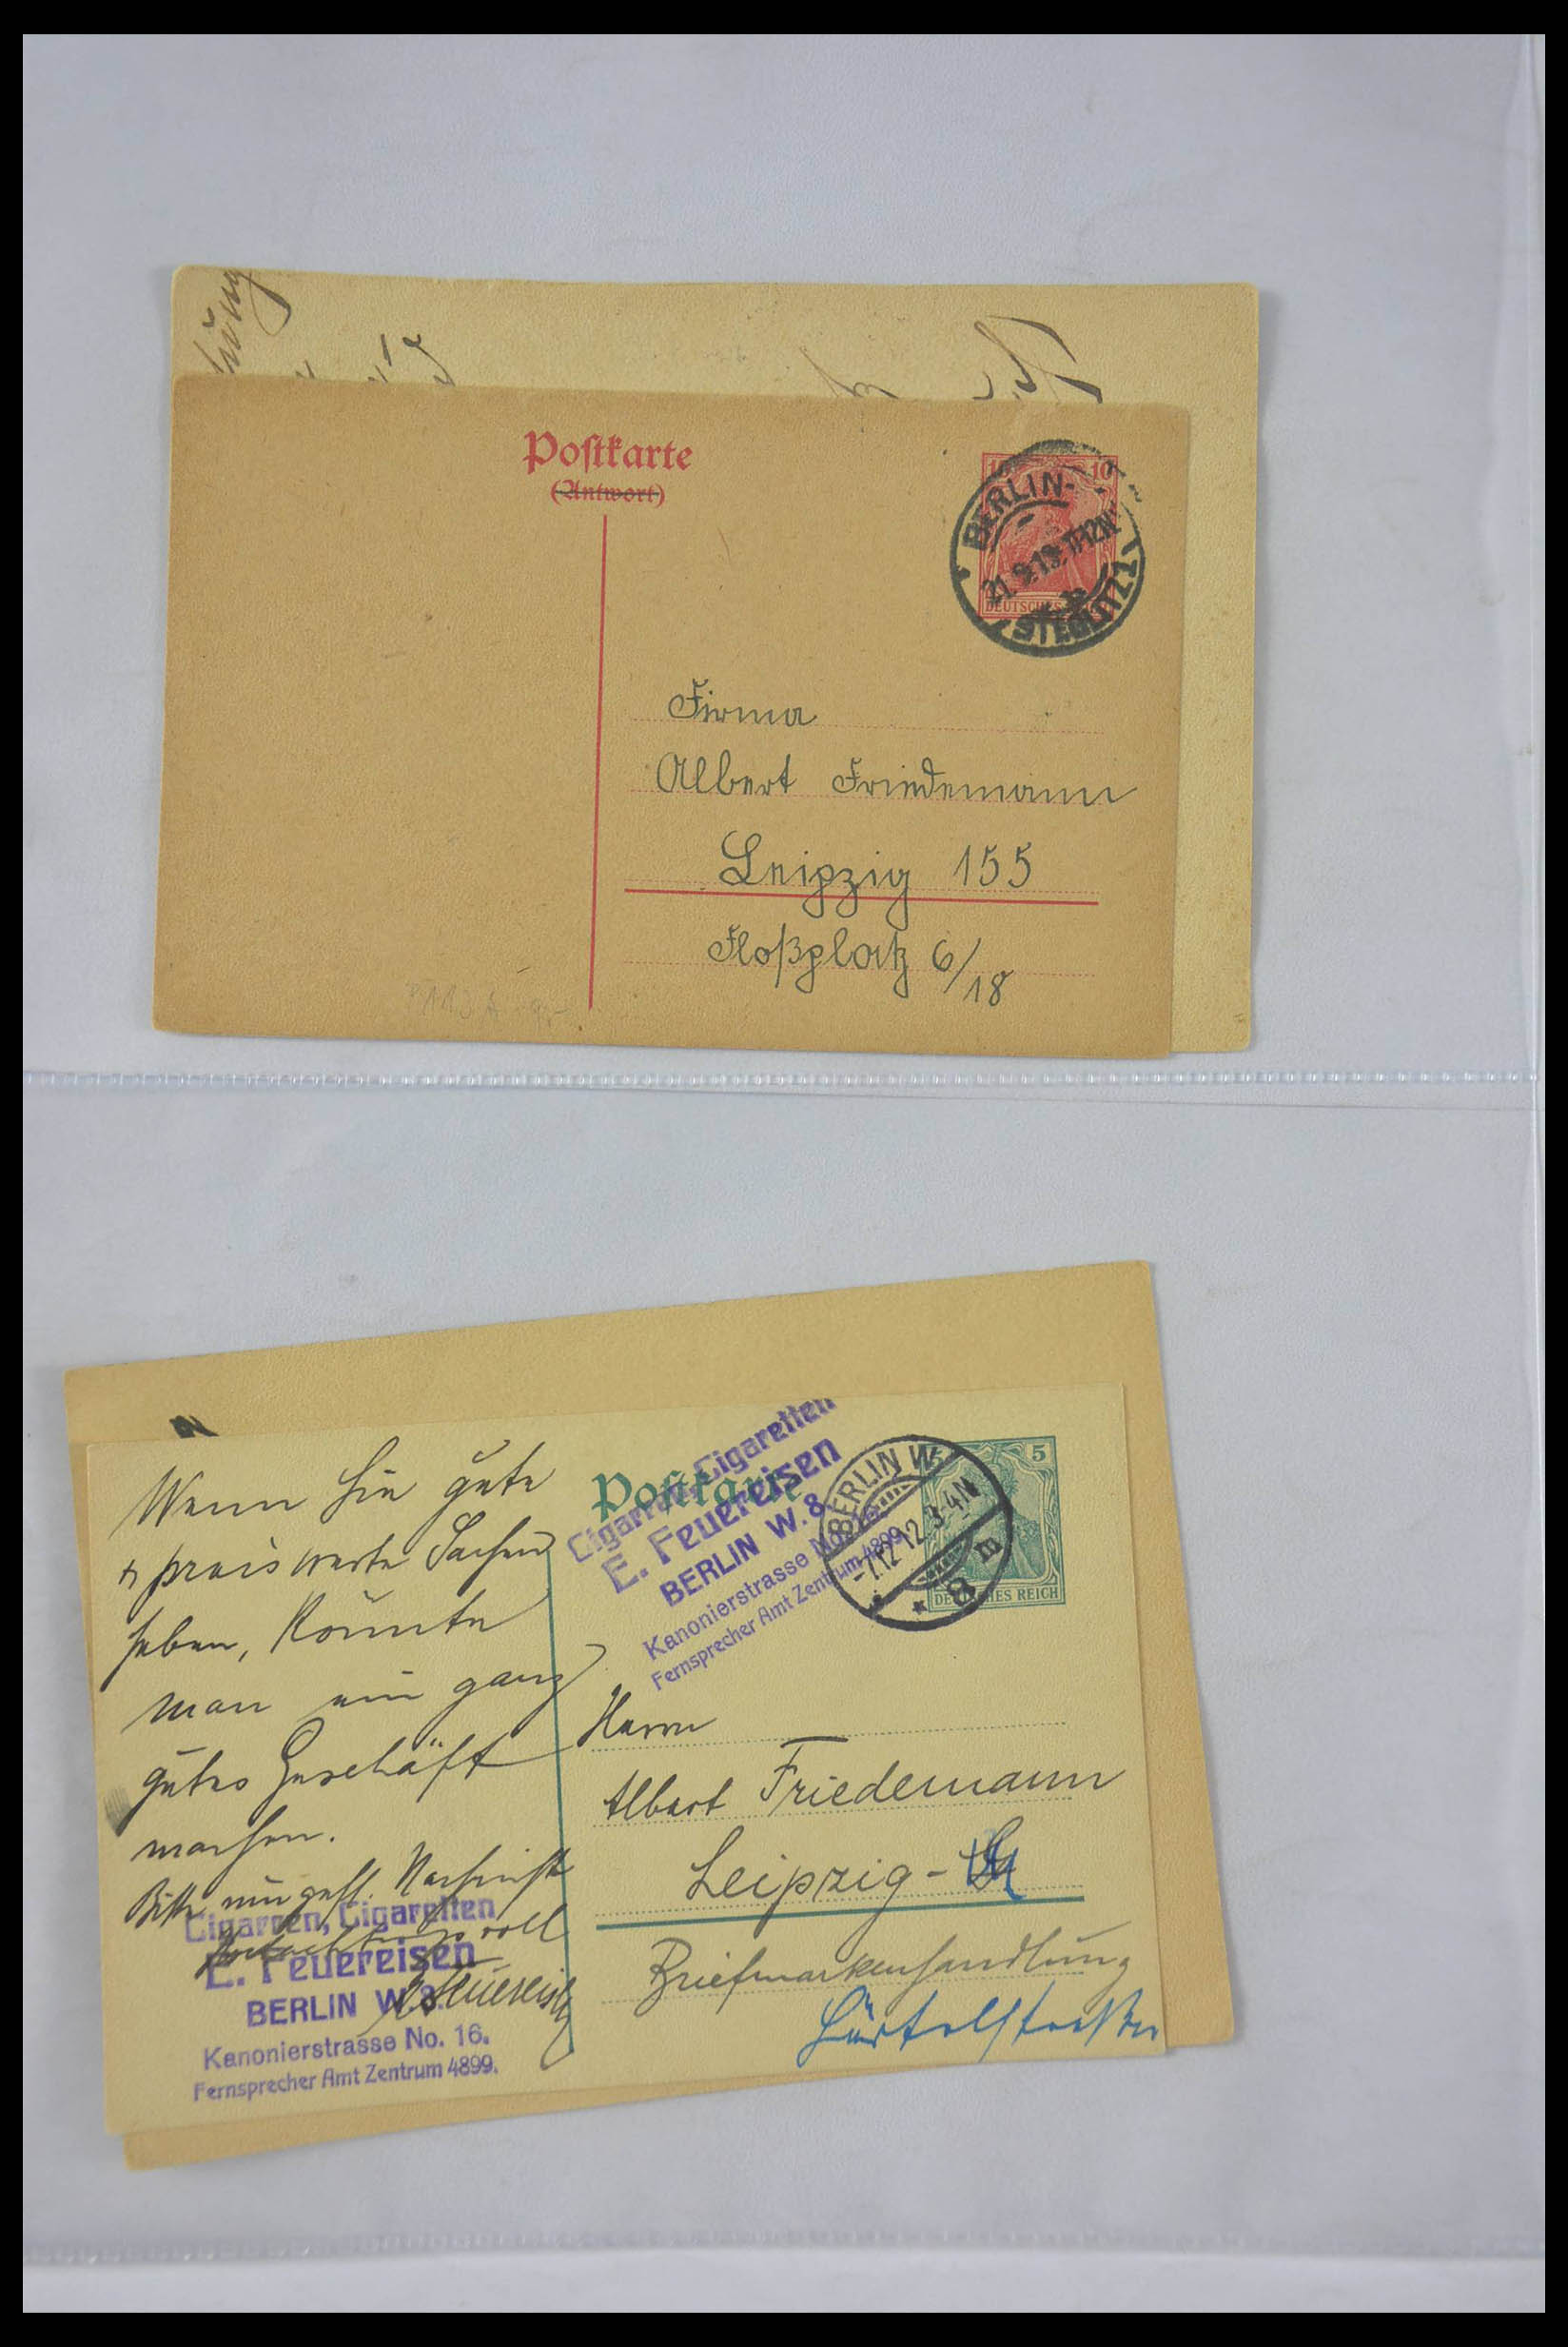 Postkarte
(Antwort)
10 10
BERLIN-
21.9.19. 11-12N
STEGLITZ 1
DEUTSCHES
Firma
Albert Friedemann
Leipzig 155
Floßplatz 6/18
Wenn Sie gute
preiswerte Sachen
haben, könnte
man ein ganz
gutes Geschäft
machen.
Bitte um gefl. Nachricht
Hochachtungsvoll
E. Feuereisen
Cigarren, Cigaretten
E. Feuereisen
BERLIN W. 8.
Kanonierstrasse No. 16.
Fernsprecher Amt Zentrum 4899.
Postkarte
Cigarren, Cigaretten
E. Feuereisen
BERLIN W. 8.
Kanonierstrasse No.
Fernsprecher Amt Zentrum 4899.
5
BERLIN W.
-7.12.12. 3-4N
* 8 m
DEUTSCHES REICH
Herrn
Albert Friedemann
Leipzig-
Briefmarkenhandlung
Härtelstraße